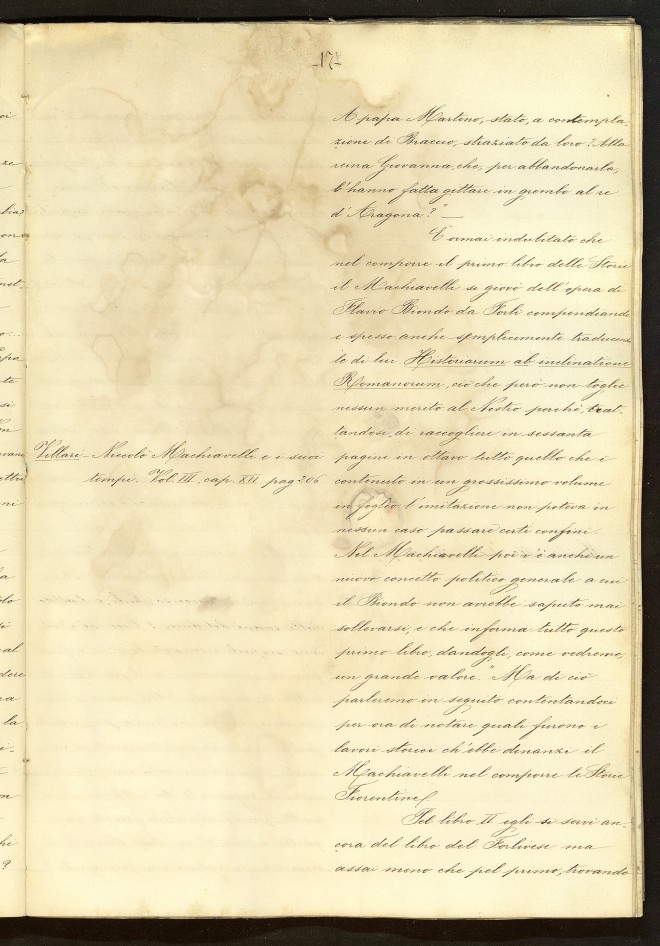 -17-
A papa Martino, stato, a contempla-
zione di Braccio, straziato da loro? Alla
reina Giovanna, che, per abbandonarla,
l'hanno fatta gittare in grembo al re
d'Aragona?" —
È ormai indubitato che
nel comporre il primo libro delle Storie
il Machiavelli si giovò dell'opera di
Flavio Biondo da Forlì compendiando
e spesso anche semplicemente traducendo
le di lui Historiarum ab inclinatione
Romanorum, ciò che però non toglie
nessun merito al Nostro perchè, trat-
tandosi, di raccogliere in sessanta
pagine in ottavo tutto quello che è
contenuto in un grossissimo volume
in foglio l'imitazione non poteva in
nessun caso passare certi confini.
Nel Machiavelli poi v'è anche un
nuovo concetto politico generale a cui
il Biondo non avrebbe saputo mai
sollevarsi, e che informa tutto questo
primo libro, dandogli, come vedremo,
un grande valore." Ma di ciò
parleremo in seguito contentandoci
per ora di notare quali furono i
lavori storici ch'ebbe dinanzi il
Machiavelli nel comporre le Storie
Fiorentine.
Pel libro II egli si servì an-
cora del libro del Forlivese ma
assai meno che pel primo, trovando
Villari - Niccolò Machiavelli e i suoi
tempi. Vol. III, cap. XII pag 206